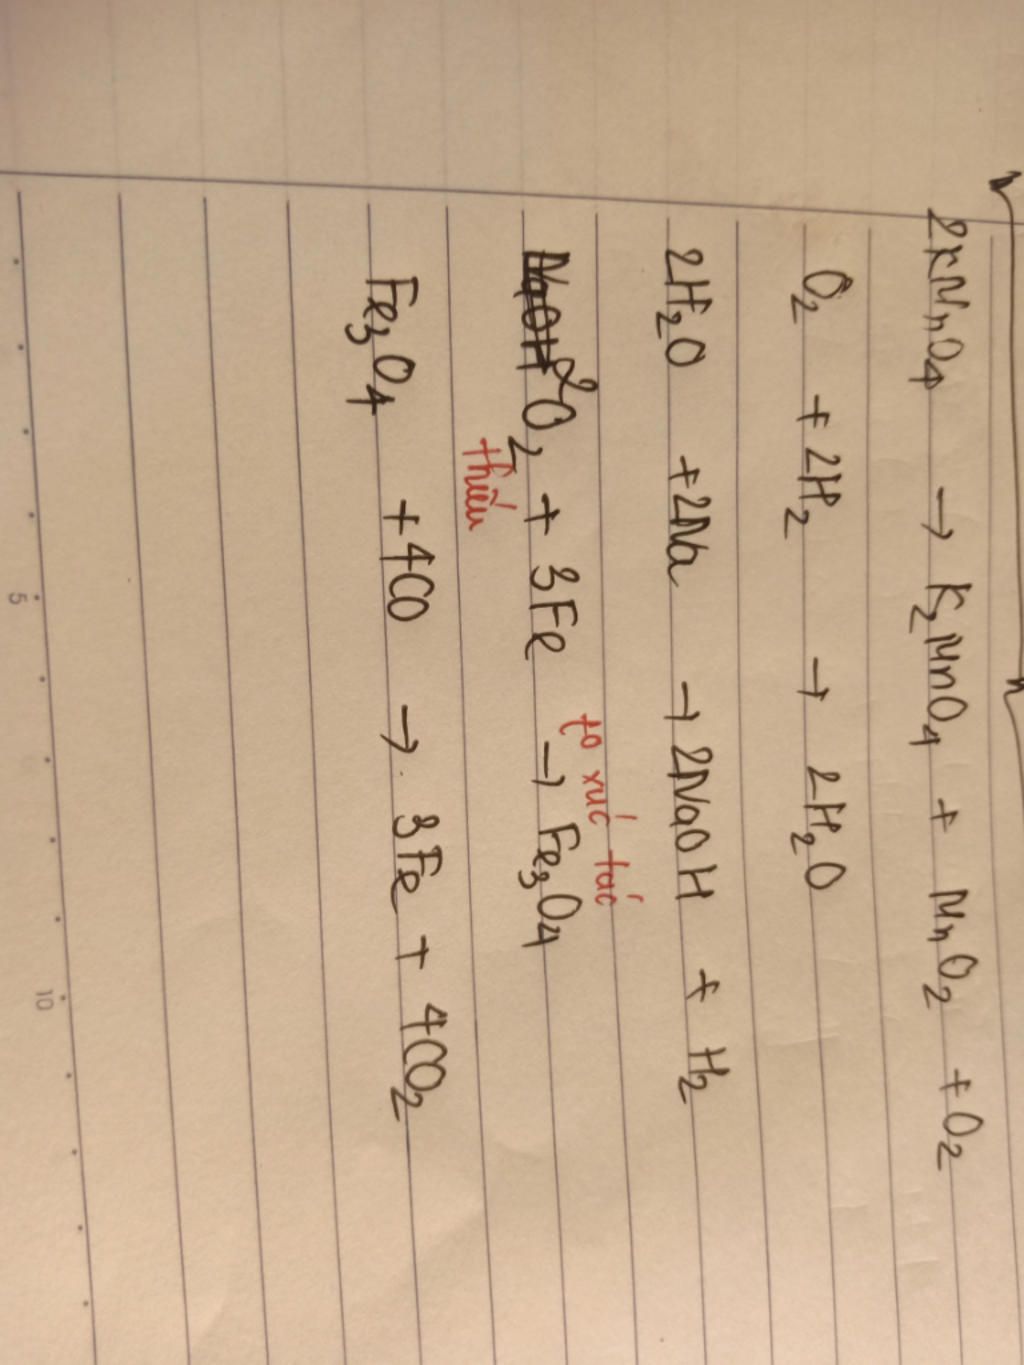 2KMnO₄ → K₂MnO₄ + MnO₂ + O₂
O₂ + 2H₂ → 2H₂O
2H₂O + 2Na → 2NaOH + H₂
to xúc tác
2O₂ + 3Fe → Fe₃O₄
thiếu
Fe₃O₄ + 4CO → 3Fe + 4CO₂
5 10